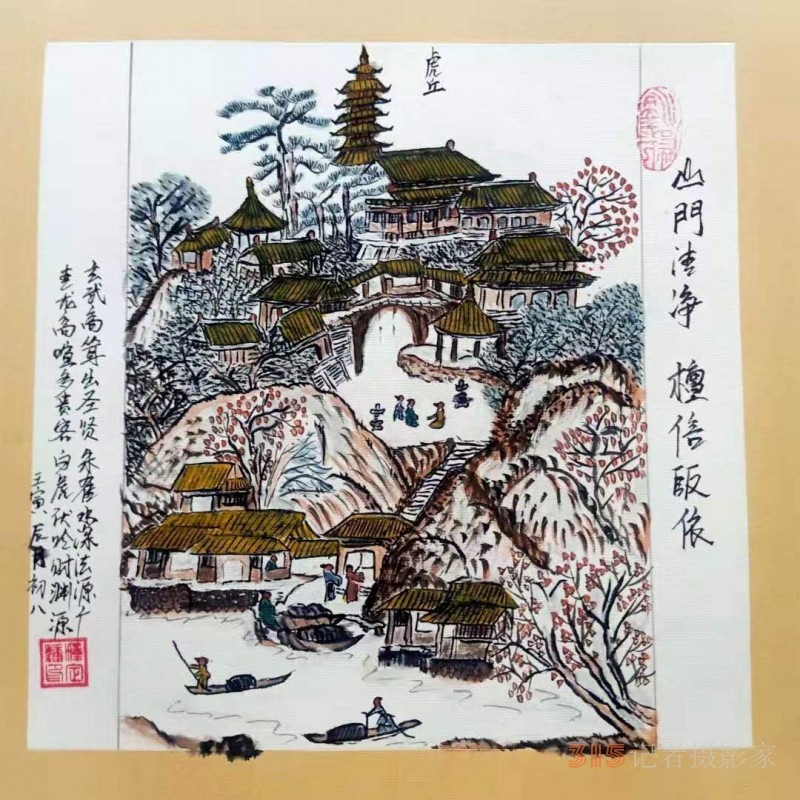 虎丘
山門清净 檀信皈依
玄武高耸出圣贤 朱雀水深法源广
青龙高喧多贵客 白虎伏吟财渊源
壬寅、辰月初八
315记者摄影家